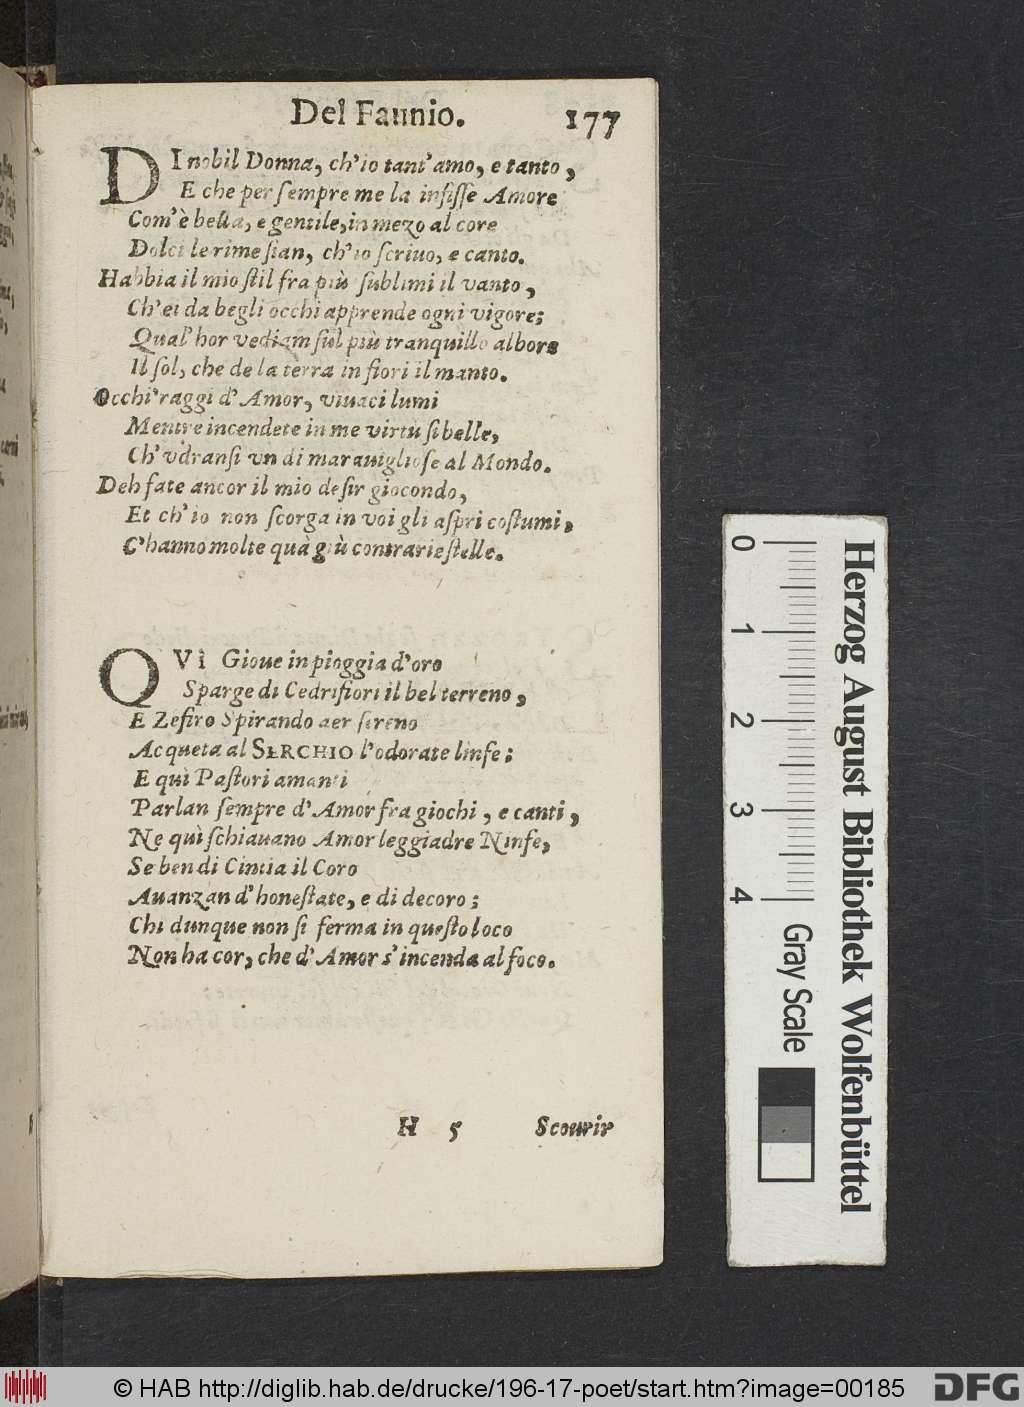 Del Faunio. 177
DI nobil Donna, ch'io tant' amo, e tanto,
E che per ſempre me la inſiſſe Amore
Com'è bella, e gentile, in mezo al core
Dolci le rime ſian, ch'io ſcriuo, e canto.
Habbia il mio ſtil fra più ſublimi il vanto,
Ch'ei da begli occhi apprende ogni vigore;
Qual' hor vediam ſul più tranquillo albore
Il ſol, che de la terra in fiori il manto.
Occhi raggi d' Amor, viuaci lumi
Mentre incendete in me virtù ſi belle,
Ch' vdranſi vn di marauiglioſe al Mondo.
Deh fate ancor il mio deſir giocondo,
Et ch' io non ſcorga in voi gli aſpri coſtumi,
C'hanno molte quà giù contrarie ſtelle.
QVì Gioue in pioggia d'oro
Sparge di Cedri fiori il bel terreno,
E Zefiro Spirando aer ſereno
Acqueta al SERCHIO l'odorate linfe;
E quì Paſtori amanti
Parlan ſempre d' Amor fra giochi, e canti,
Ne quì ſchiauano Amor leggiadre Ninfe,
Se ben di Cintia il Coro
Auanzan d' honeſtate, e di decoro;
Chi dunque non ſi ferma in queſto loco
Non ha cor, che d' Amor s' incenda al foco.
H 5 Scourir
0 1 2 3 4
Gray Scale
Herzog August Bibliothek Wolfenbüttel
© HAB http://diglib.hab.de/drucke/196-17-poet/start.htm?image=00185
DFG